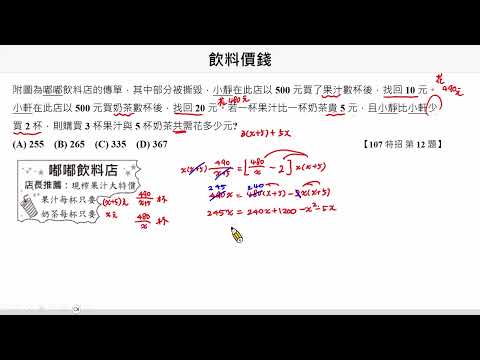 飲料價錢
附圖為嘟嘟飲料店的傳單，其中部分被撕毀，小靜在此店以 500 元買了果汁數杯後，找回 10 元。
花 490元
小軒在此店以 500 元買奶茶數杯後，找回 20 元。若一杯果汁比一杯奶茶貴 5 元，且小靜比小軒少
花 480元
買 2 杯，則購買 3 杯果汁與 5 杯奶茶共需花多少元？
3(x+5)+5x
(A) 255 (B) 265 (C) 335 (D) 367 【107 特招 第 12 題】
嘟嘟飲料店
店長推薦：現榨果汁大特價
果汁每杯只要 (x+5)元 490/x+5 杯
奶茶每杯只要 x元 480/x 杯
x(x+5) 490/x+5 = [480/x - 2] x(x+5)
245 240
490x = 480(x+5) - 2x(x+5)
245x = 240x+1200 - x²-5x